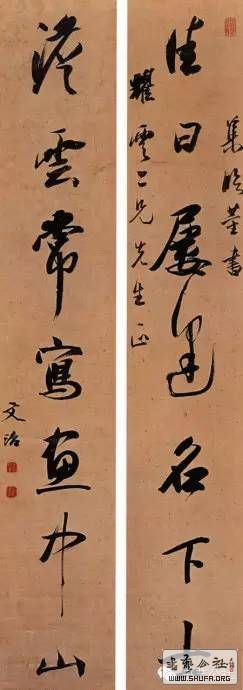 集臨董書
佳日屢逢名下士
耀雲二兄先生正
淡雲常寫畫中山
文治
书艺公社
WWW.SHUFA.ORG